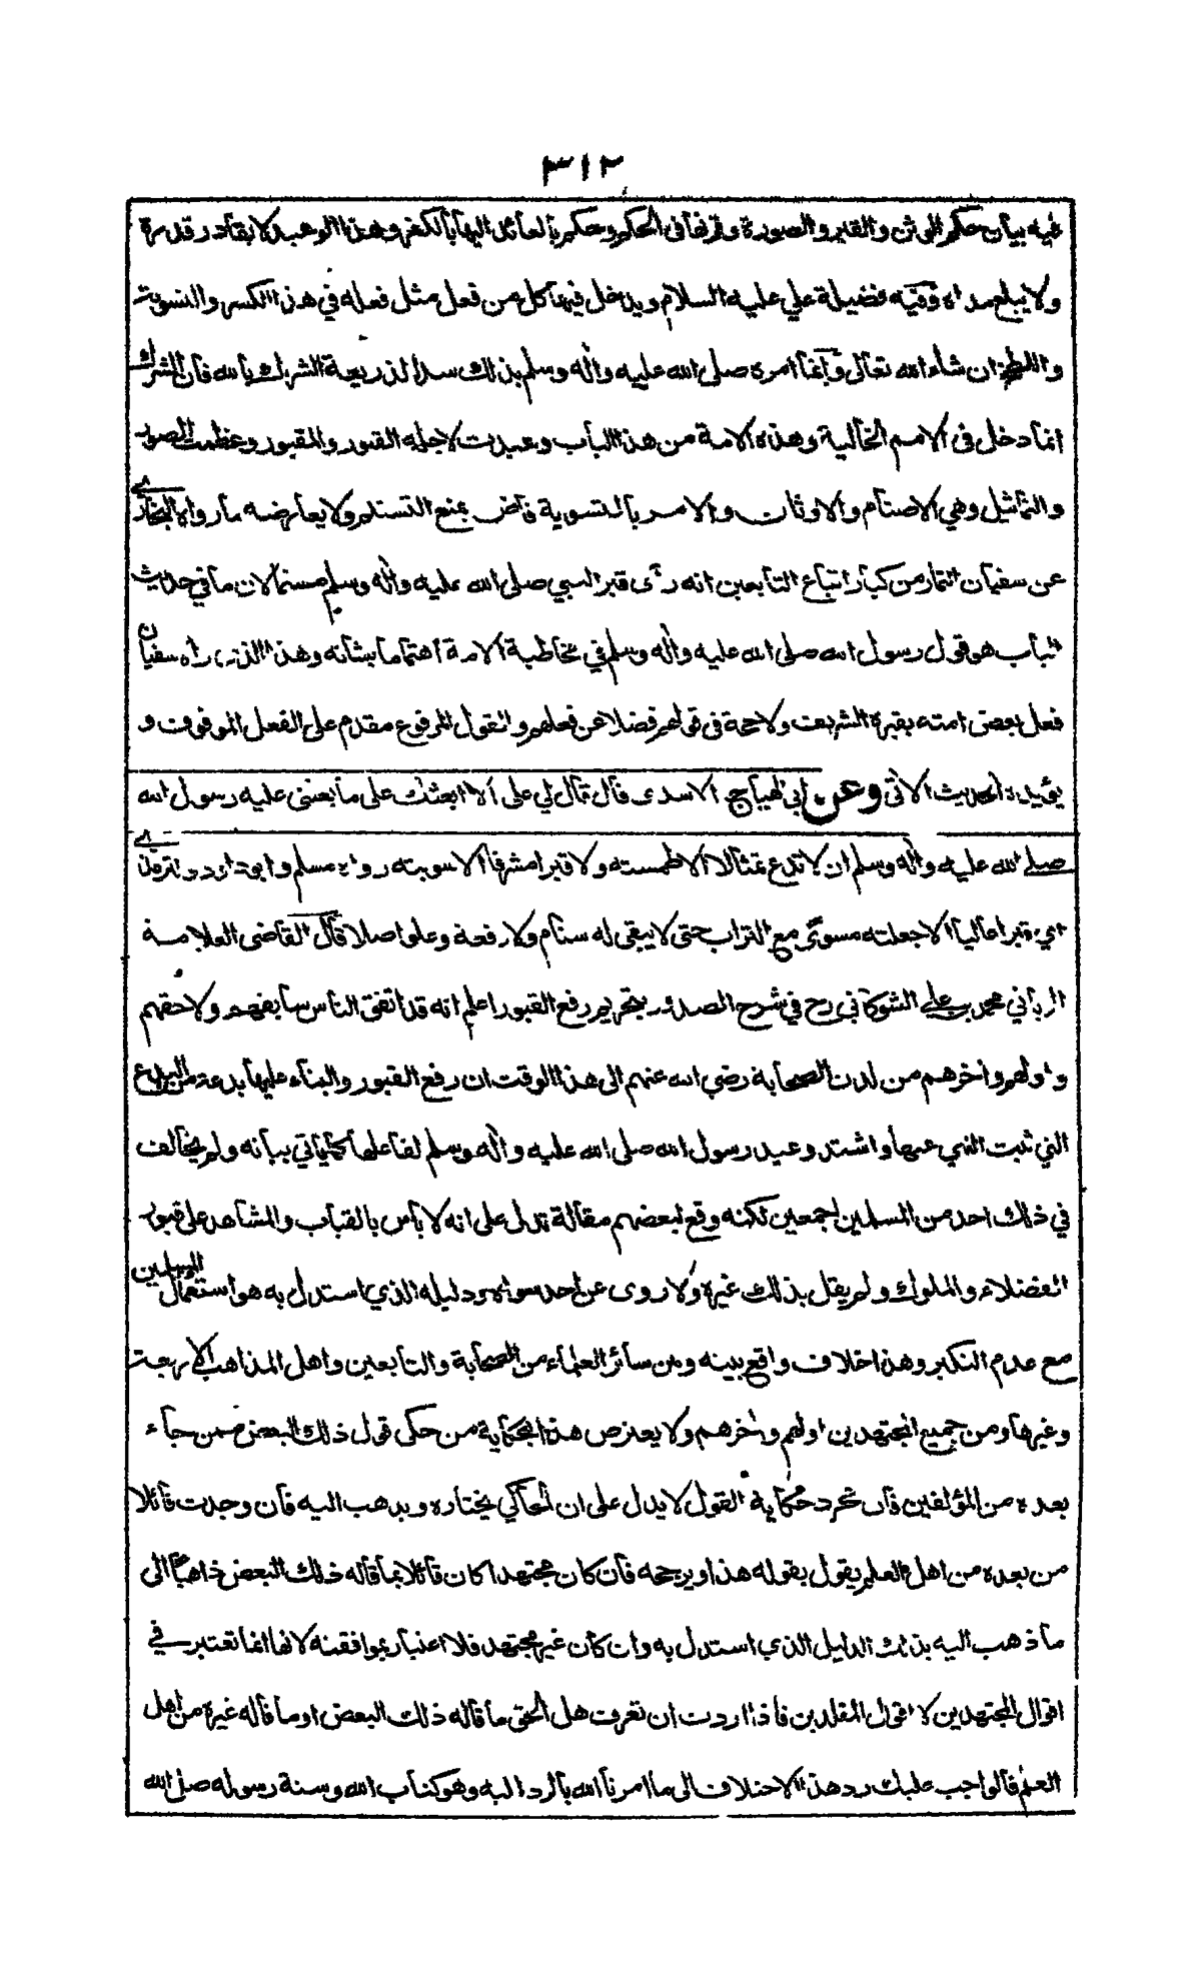 ٣١٢
فيه بيان حكم الوثن والقبر والصورة وقرنها فى الحكم وحكم بالعائد اليها بالكفر وهذا الوعيد لا يقادر قدره
ولا يبلغ مداه وفيه فضيلة علي عليه السلام ويدخل فيها كل من فعل مثل فعله في هذا الكسر والتسوية
واللطخ ان شاء الله تعالى وانما امره صلى الله عليه واله وسلم بذلك سدا لذريعة الشرك بالله فان الشرك
انما دخل فى الامم الخالية وهذه الامة من هذا الباب وعبدت لاجله القبور والمقبور وعظمت الصور
والتماثيل وهي الاصنام والاوثان والامر بالتسوية قاض بمنع التسنيم ولا يعارضه ما رواه البخاري
عن سفيان التمار من كبار اتباع التابعين انه رأى قبر النبي صلى الله عليه واله وسلم مسنما لان ما في حديث
الباب هو قول رسول الله صلى الله عليه واله وسلم في مخاطبة الامة اهتماما بشانه وهذا الذي راه سفيان
فعل بعض امته بقبره الشريف ولا حجة فى قولهم فضلا عن فعلهم والقول المرفوع مقدم على الفعل الموقوف و
يؤيده الحديث الاتى وعن ابى الهياج الاسدى قال قال لي على الا ابعثك على ما بعثنى عليه رسول الله
صلى الله عليه واله وسلم ان لا تدع تمثالا الا طمسته ولا قبرا مشرفا الا سويته رواه مسلم وابو داود والترمذي
اي قبرا عاليا الا جعلته مسوى مع التراب حتى لا يبقى له سنام ولا رفعة وعلوا صلا قال القاضى العلامة
الرباني محمد بن علي الشوكانى رح في شرح الصدور بتحريم رفع القبور اعلم انه قد اتفق الناس سابقهم ولاحقهم
واولهم واخرهم من لدن الصحابة رضي الله عنهم الى هذا الوقت ان رفع القبور والبناء عليها بدعة من البدع
التي ثبت النهي عنها واشتد وعيد رسول الله صلى الله عليه واله وسلم لفاعلها كما ياتي بيانه ولم يخالف
في ذلك احد من المسلمين اجمعين لكنه وقع لبعضهم مقالة تدل على انه لا بأس بالقباب والمشاهد على قبور
الفضلاء والملوك ولم يقل بذلك غيره ولا روى عن احد سواه ودليله الذي استدل به هو استعمال المسلمين
مع عدم النكير وهذا خلاف واقع بينه وبين سائر العلماء من الصحابة والتابعين واهل المذاهب الاربعة
وغيرها ومن جميع المجتهدين اولهم واخرهم ولا يعترض هذا بحكاية من حكى قول ذلك البعض ممن جاء
بعده من المؤلفين فان مجرد حكاية القول لا يدل على ان الحاكي يختاره ويذهب اليه فان وجدت قائلا
من بعده من اهل العلم يقول بقوله هذا او يرجحه فان كان مجتهدا كان قائلا بما قاله ذلك البعض ذاهبا الى
ما ذهب اليه بذلك الدليل الذي استدل به وان كان غير مجتهد فلا اعتبار بموافقته لانها انما تعتبر في
اقوال المجتهدين لا اقوال المقلدين فاذا اردت ان تعرف هل الحق ما قاله ذلك البعض او ما قاله غيره من اهل
العلم فالواجب عليك رد هذا الاختلاف الى ما امرنا الله بالرد اليه وهو كتاب الله وسنة رسوله صلى الله